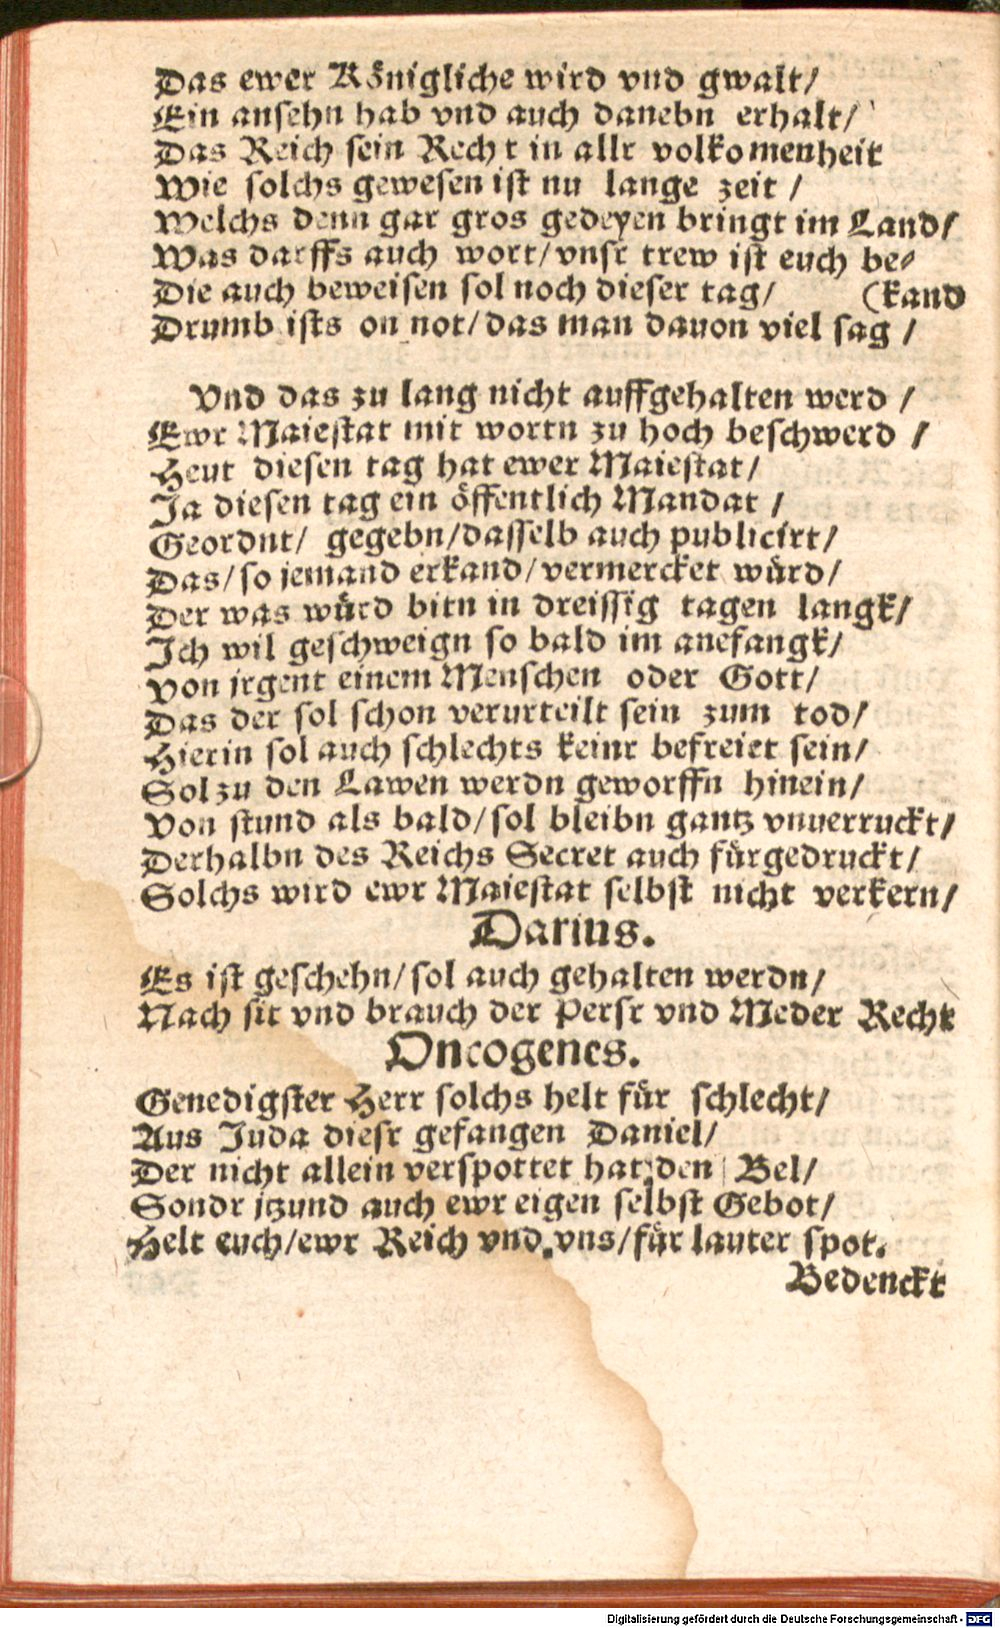 Das ewer Königliche wird vnd gwalt/
Ein ansehn hab vnd auch danebn erhalt/
Das Reich sein Recht in allr volkomenheit
Wie solchs gewesen ist nu lange zeit /
Welchs denn gar gros gedeyen bringt im Land/
Was darffs auch wort/vnsr trew ist euch be-
Die auch beweisen sol noch dieser tag/ (kand
Drumb ists on not/das man dauon viel sag /
Vnd das zu lang nicht auffgehalten werd /
Ewr Maiestat mit wortn zu hoch beschwerd /
Heut diesen tag hat ewer Maiestat/
Ja diesen tag ein öffentlich Mandat /
Geordnt/ gegebn/dasselb auch publicirt/
Das/so jemand erkand/vermercket würd/
Der was würd bitn in dreissig tagen langk/
Ich wil geschweign so bald im anefangk/
Von jrgent einem Menschen oder Gott/
Das der sol schon verurteilt sein zum tod/
Hierin sol auch schlechts keinr befreiet sein/
Sol zu den Lawen werdn geworffn hinein/
Von stund als bald/sol bleibn gantz vnuerruckt/
Derhalbn des Reichs Secret auch fürgedruckt/
Solchs wird ewr Maiestat selbst nicht verkern/
Darius.
Es ist geschehn/sol auch gehalten werdn/
Nach sit vnd brauch der Persr vnd Meder Recht
Oncogenes.
Genedigster Herr solchs helt für schlecht/
Aus Juda diesr gefangen Daniel/
Der nicht allein verspottet hat den Bel/
Sondr jtzund auch ewr eigen selbst Gebot/
Helt euch/ewr Reich vnd vns/für lauter spot.
Bedenckt
Digitalisierung gefördert durch die Deutsche Forschungsgemeinschaft - DFG